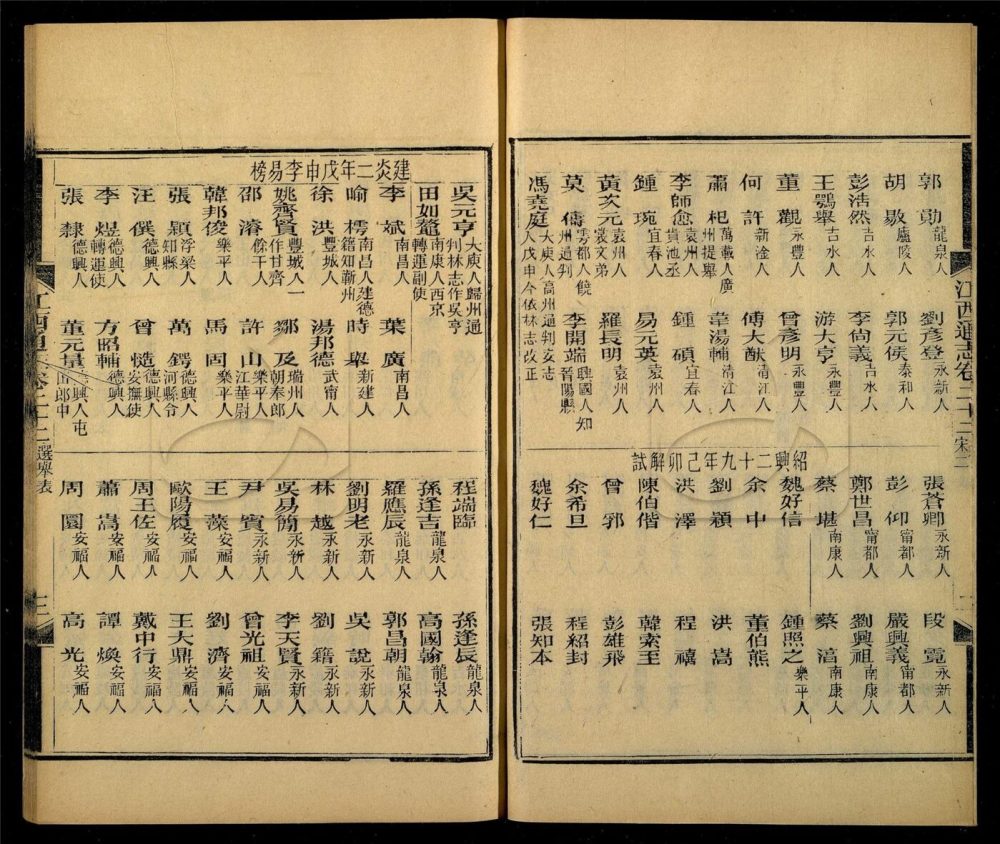 江西通志卷二十二 宋二
郭勛 龍泉人 劉彥登 永新人
胡敭 廬陵人 郭元侯 泰和人
彭浩然 吉水人 李尚義 吉水人
王鶚舉 吉水人 游大亨 永豐人
董觀 永豐人 曾彥明 永豐人
何許 新淦人 傅大猷 清江人
蕭杞 萬載人廣州提舉 韋湯輔 清江人
李師愈 袁州人貴池丞 鍾碩 宜春人
鍾琬 宜春人 易元英 袁州人
黃次元 袁州人裳文弟 羅長明 袁州人
莫儔 雩都人饒州通判 李開端 興國人知晉陽縣
馮堯庭 大庾人高州通判亥志人戊申今依林志改正
張蒼卿 永新人 段霓 永新人
彭仰 甯都人 嚴興義 甯都人
鄭世昌 甯都人 劉興祖 南康人
蔡堪 南康人 蔡滈 南康人
紹興二十九年己卯解試
魏好信 鍾照之 樂平人
余中 董伯熊
劉穎 洪嵩
洪澤 程禧
陳伯偕 韓索至
曾郭 彭雄飛
余希旦 程紹封
魏好仁 張知本
吳元亨 大庾人歸州通判林志作吳亨
田如鼇 南康人西京轉運副使
建炎二年戊申李易榜
李斌 南昌人 葉廣 南昌人
喻樗 南昌人建德籍知蘄州 時舉 新建人
徐洪 豐城人 湯邦德 武甯人
姚齊賢 豐城人一作甘齊 鄒及 瑞州人朝奉郎
邵濬 餘干人 許山 樂平人江華尉
韓邦俊 樂平人 馬固 樂平人
張穎 浮梁人知縣 萬鍔 德興人河縣令
汪僎 德興人 曾慥 德興人安撫使
李煜 德興人轉運使 方昭輔 德興人
張隸 德興人 董元景 德興人屯田郎中
程端臨 孫逢辰 龍泉人
孫逢吉 龍泉人 高國翰 龍泉人
羅應辰 龍泉人 郭昌朝 龍泉人
劉明老 永新人 吳說 永新人
林越 永新人 劉籍 永新人
吳易簡 永新人 李天賢 永新人
尹賓 永新人 曾光祖 安福人
王藻 安福人 劉濟 安福人
歐陽履 安福人 王大鼎 安福人
周王佐 安福人 戴中行 安福人
蕭嵩 安福人 譚煥 安福人
周園 安福人 高光 安福人
二十二 選舉表